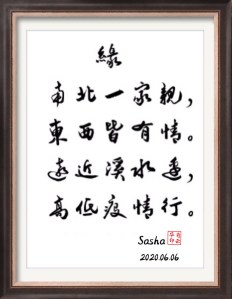 緣
南北一家親，
東西皆有情。
遠近溪水連，
高低疫情行。
Sasha
2020.06.06